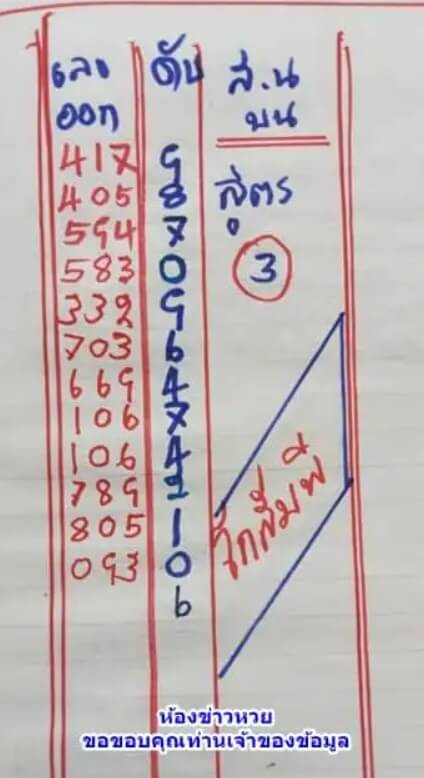 เลข ดับ ส.น
ออก บน
417 9
405 8 สูตร
594 7
583 0 3
332 9
703 6
669 4
106 7
106 4
789 2
805 1
093 0
6
ห้องข่าวหวย
ขอขอบคุณท่านเจ้าของข้อมูล